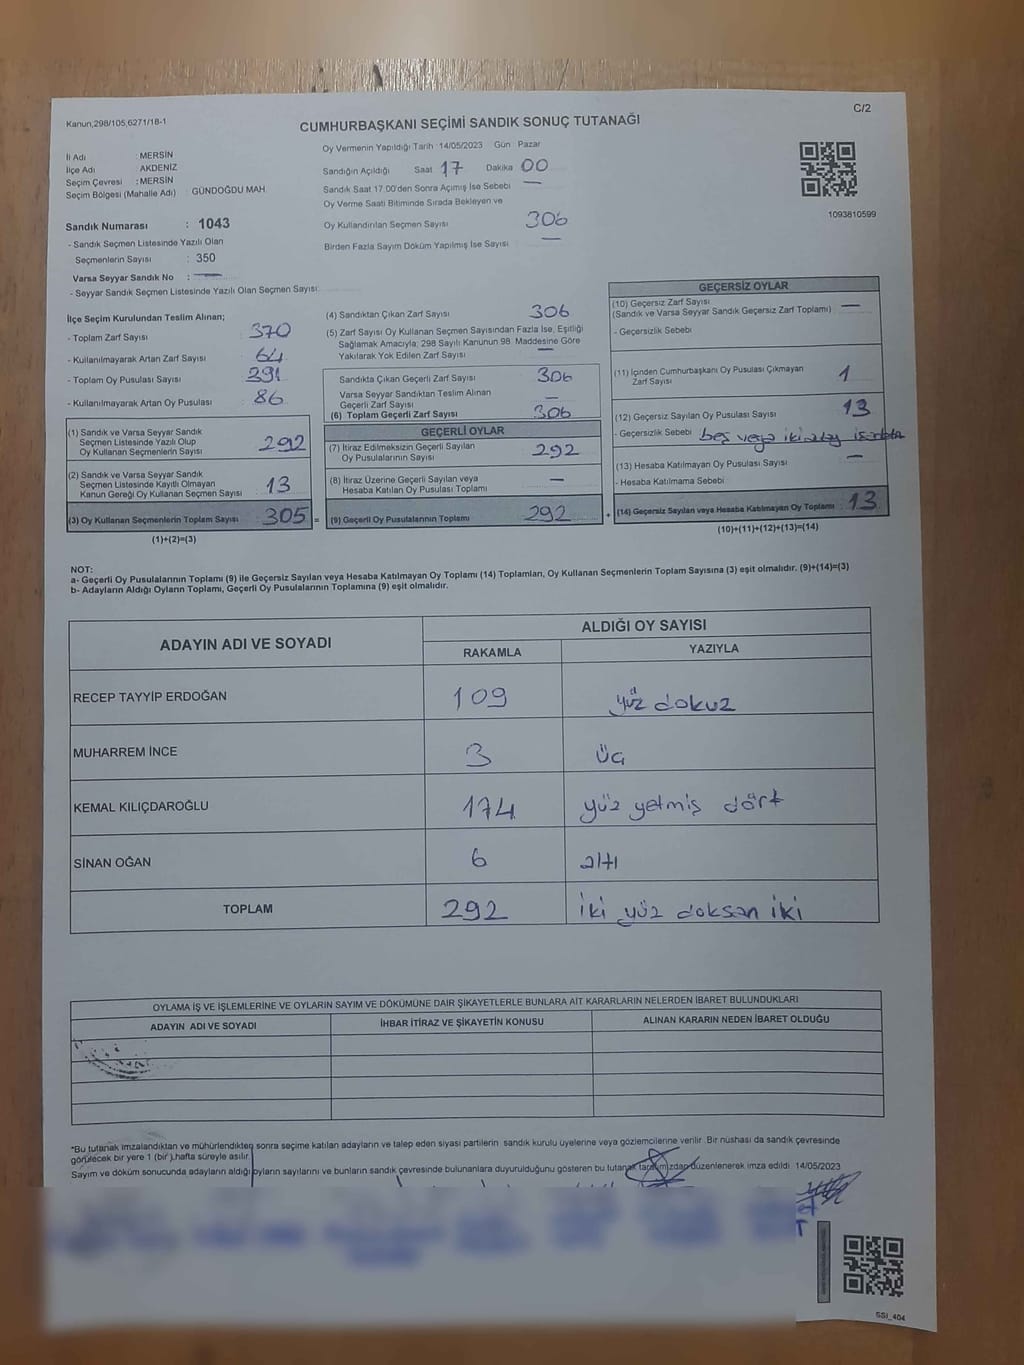 C/2
Kanun,298/105,6271/18-1
CUMHURBAŞKANI SEÇİMİ SANDIK SONUÇ TUTANAĞI
İl Adı : MERSİN
İlçe Adı : AKDENİZ
Seçim Çevresi : MERSİN
Seçim Bölgesi (Mahalle Adı) GÜNDOĞDU MAH.
Sandık Numarası : 1043
- Sandık Seçmen Listesinde Yazılı Olan
Seçmenlerin Sayısı : 350
Varsa Seyyar Sandık No : —
- Seyyar Sandık Seçmen Listesinde Yazılı Olan Seçmen Sayısı:
Oy Vermenin Yapıldığı Tarih :14/05/2023 Gün : Pazar
Sandığın Açıldığı Saat 17 Dakika 00
Sandık Saat 17.00'den Sonra Açımış İse Sebebi —
Oy Verme Saati Bitiminde Sırada Bekleyen ve
Oy Kullandırılan Seçmen Sayısı 306
Birden Fazla Sayım Döküm Yapılmış İse Sayısı —
1093810599
İlçe Seçim Kurulundan Teslim Alınan;
- Toplam Zarf Sayısı 370
- Kullanılmayarak Artan Zarf Sayısı 64
- Toplam Oy Pusulası Sayısı 391
- Kullanılmayarak Artan Oy Pusulası 86
(1) Sandık ve Varsa Seyyar Sandık
Seçmen Listesinde Yazılı Olup
Oy Kullanan Seçmenlerin Sayısı 292
(2) Sandık ve Varsa Seyyar Sandık
Seçmen Listesinde Kayıtlı Olmayan
Kanun Gereği Oy Kullanan Seçmen Sayısı 13
(3) Oy Kullanan Seçmenlerin Toplam Sayısı 305 =
(1)+(2)=(3)
(4) Sandıktan Çıkan Zarf Sayısı 306
(5) Zarf Sayısı Oy Kullanan Seçmen Sayısından Fazla İse, Eşitliği
Sağlamak Amacıyla; 298 Sayılı Kanunun 98. Maddesine Göre
Yakılarak Yok Edilen Zarf Sayısı —
Sandıkta Çıkan Geçerli Zarf Sayısı 306
Varsa Seyyar Sandıktan Teslim Alınan
Geçerli Zarf Sayısı —
(6) Toplam Geçerli Zarf Sayısı 306
GEÇERLİ OYLAR
(7) İtiraz Edilmeksizin Geçerli Sayılan
Oy Pusulalarının Sayısı 292
(8) İtiraz Üzerine Geçerli Sayılan veya
Hesaba Katılan Oy Pusulası Toplamı —
(9) Geçerli Oy Pusulalarının Toplamı 292 +
GEÇERSİZ OYLAR
(10) Geçersiz Zarf Sayısı —
(Sandık ve Varsa Seyyar Sandık Geçersiz Zarf Toplamı)
- Geçersizlik Sebebi
(11) İçinden Cumhurbaşkanı Oy Pusulası Çıkmayan
Zarf Sayısı 1
(12) Geçersiz Sayılan Oy Pusulası Sayısı 13
- Geçersizlik Sebebi boş veya iki
(13) Hesaba Katılmayan Oy Pusulası Sayısı —
- Hesaba Katılmama Sebebi
(14) Geçersiz Sayılan veya Hesaba Katılmayan Oy Toplamı 13
(10)+(11)+(12)+(13)=(14)
NOT:
a- Geçerli Oy Pusulalarının Toplamı (9) ile Geçersiz Sayılan veya Hesaba Katılmayan Oy Toplamı (14) Toplamları, Oy Kullanan Seçmenlerin Toplam Sayısına (3) eşit olmalıdır. (9)+(14)=(3)
b- Adayların Aldığı Oyların Toplamı, Geçerli Oy Pusulalarının Toplamına (9) eşit olmalıdır.
ADAYIN ADI VE SOYADI ALDIĞI OY SAYISI
RAKAMLA YAZIYLA
RECEP TAYYİP ERDOĞAN 109 yüz dokuz
MUHARREM İNCE 3 üç
KEMAL KILIÇDAROĞLU 174 yüz yetmiş dört
SİNAN OĞAN 6 altı
TOPLAM 292 iki yüz doksan iki
OYLAMA İŞ VE İŞLEMLERİNE VE OYLARIN SAYIM VE DÖKÜMÜNE DAİR ŞİKAYETLERLE BUNLARA AİT KARARLARIN NELERDEN İBARET BULUNDUKLARI
ADAYIN ADI VE SOYADI İHBAR İTİRAZ VE ŞİKAYETİN KONUSU ALINAN KARARIN NEDEN İBARET OLDUĞU
*Bu tutanak imzalandıktan ve mühürlendikten sonra seçime katılan adayların ve talep eden siyasi partilerin sandık kurulu üyelerine veya gözlemcilerine verilir. Bir nüshası da sandık çevresinde
görülecek bir yere 1 (bir ).hafta süreyle asılır.
Sayım ve döküm sonucunda adayların aldığı oyların sayılarını ve bunların sandık çevresinde bulunanlara duyurulduğunu gösteren bu tutanak tarafımızdan düzenlenerek imza edildi. 14/05/2023
SSI_404